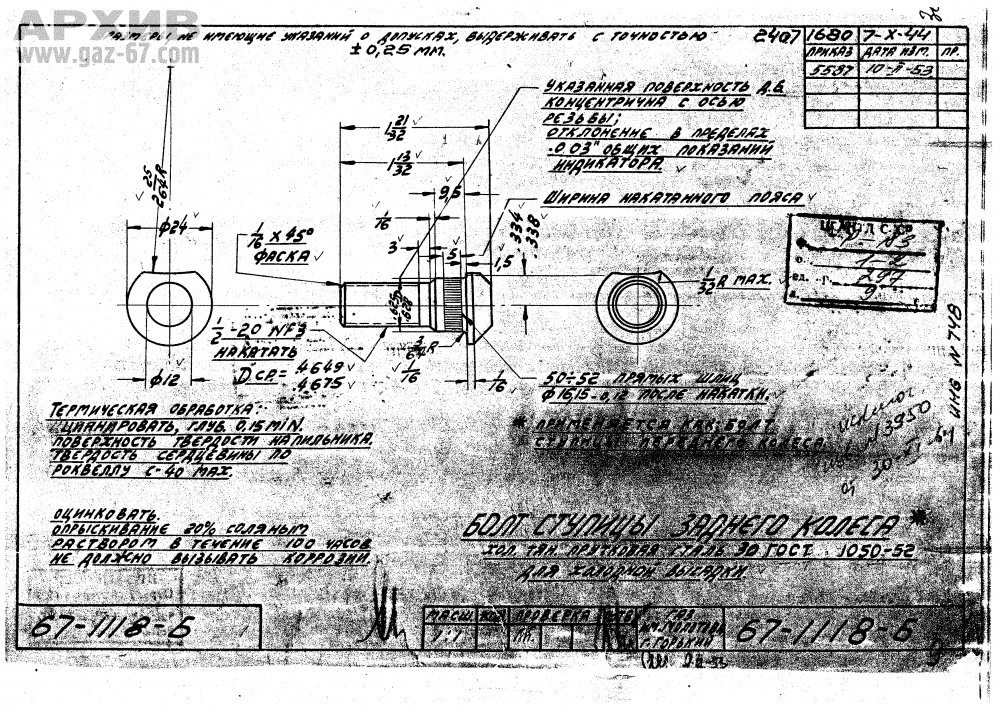 АРХИВ
www.gaz-67.com
РАЗМЕРЫ НЕ ИМЕЮЩИЕ УКАЗАНИЙ О ДОПУСКАХ, ВЫДЕРЖИВАТЬ С ТОЧНОСТЬЮ
± 0,25 ММ.
2407
1680 7-X-44
ПРИКАЗ ДАТА ИЗМ. ПР.
5587 10-II-53
УКАЗАННАЯ ПОВЕРХНОСТЬ Д.Б.
КОНЦЕНТРИЧНА С ОСЬЮ
РЕЗЬБЫ;
ОТКЛОНЕНИЕ В ПРЕДЕЛАХ
.003" ОБЩИХ ПОКАЗАНИЙ
ИНДИКАТОРА.
1 21/32
1 13/32
9,5
1/16
3
5
1,5
ШИРИНА НАКАТАННОГО ПОЯСА
.334
.338
2 25/64 R
φ24
1/16 X 45°
ФАСКА
1/32 R MAX.
1/2 - 20 NF3
НАКАТАТЬ
D СР. = .4649
.4675
3/64 R
1/16
1/16
φ12
50÷52 ПРЯМЫХ ШЛИЦ
φ 16,15 -0,12 ПОСЛЕ НАКАТКИ.
* ПРИМЕНЯЕТСЯ КАК БОЛТ
СТУПИЦЫ ПЕРЕДНЕГО КОЛЕСА
1-2
297
9
ИНВ N 748
N 3950
от
ТЕРМИЧЕСКАЯ ОБРАБОТКА:
ЦИАНИРОВАТЬ, ГЛУБ. 0,15 MIN.
ПОВЕРХНОСТЬ ТВЕРДОСТИ НАПИЛЬНИКА.
ТВЕРДОСТЬ СЕРДЦЕВИНЫ ПО
РОКВЕЛЛУ С-40 MAX.
ОЦИНКОВАТЬ.
ОПРЫСКИВАНИЕ 20% СОЛЯНЫМ
РАСТВОРОМ В ТЕЧЕНИЕ 100 ЧАСОВ
НЕ ДОЛЖНО ВЫЗЫВАТЬ КОРРОЗИИ.
БОЛТ СТУПИЦЫ ЗАДНЕГО КОЛЕСА *
ХОЛ. ТЯН. ПРУТКОВАЯ СТАЛЬ 30 ГОСТ 1050-52
ДЛЯ ХОЛОДНОЙ ВЫСАДКИ.
67-1118-Б
МАСШ. ПРОВЕРКА
1:1
ГАЗ
ИМ. МОЛОТОВА
Г. ГОРЬКИЙ
67-1118-Б